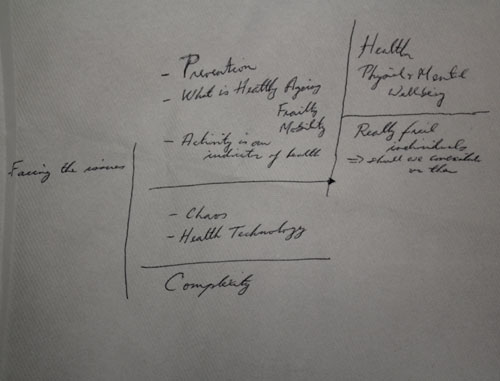 - Prevention
- What is Healthy Ageing
Frailty
Mobility
- Activity is an
indicator of health
Health
Physical + Mental
Wellbeing
Really frail
individuals
⇒ shall we concentrate
on them
Facing the issues
- Chaos
- Health Technology
Complexity